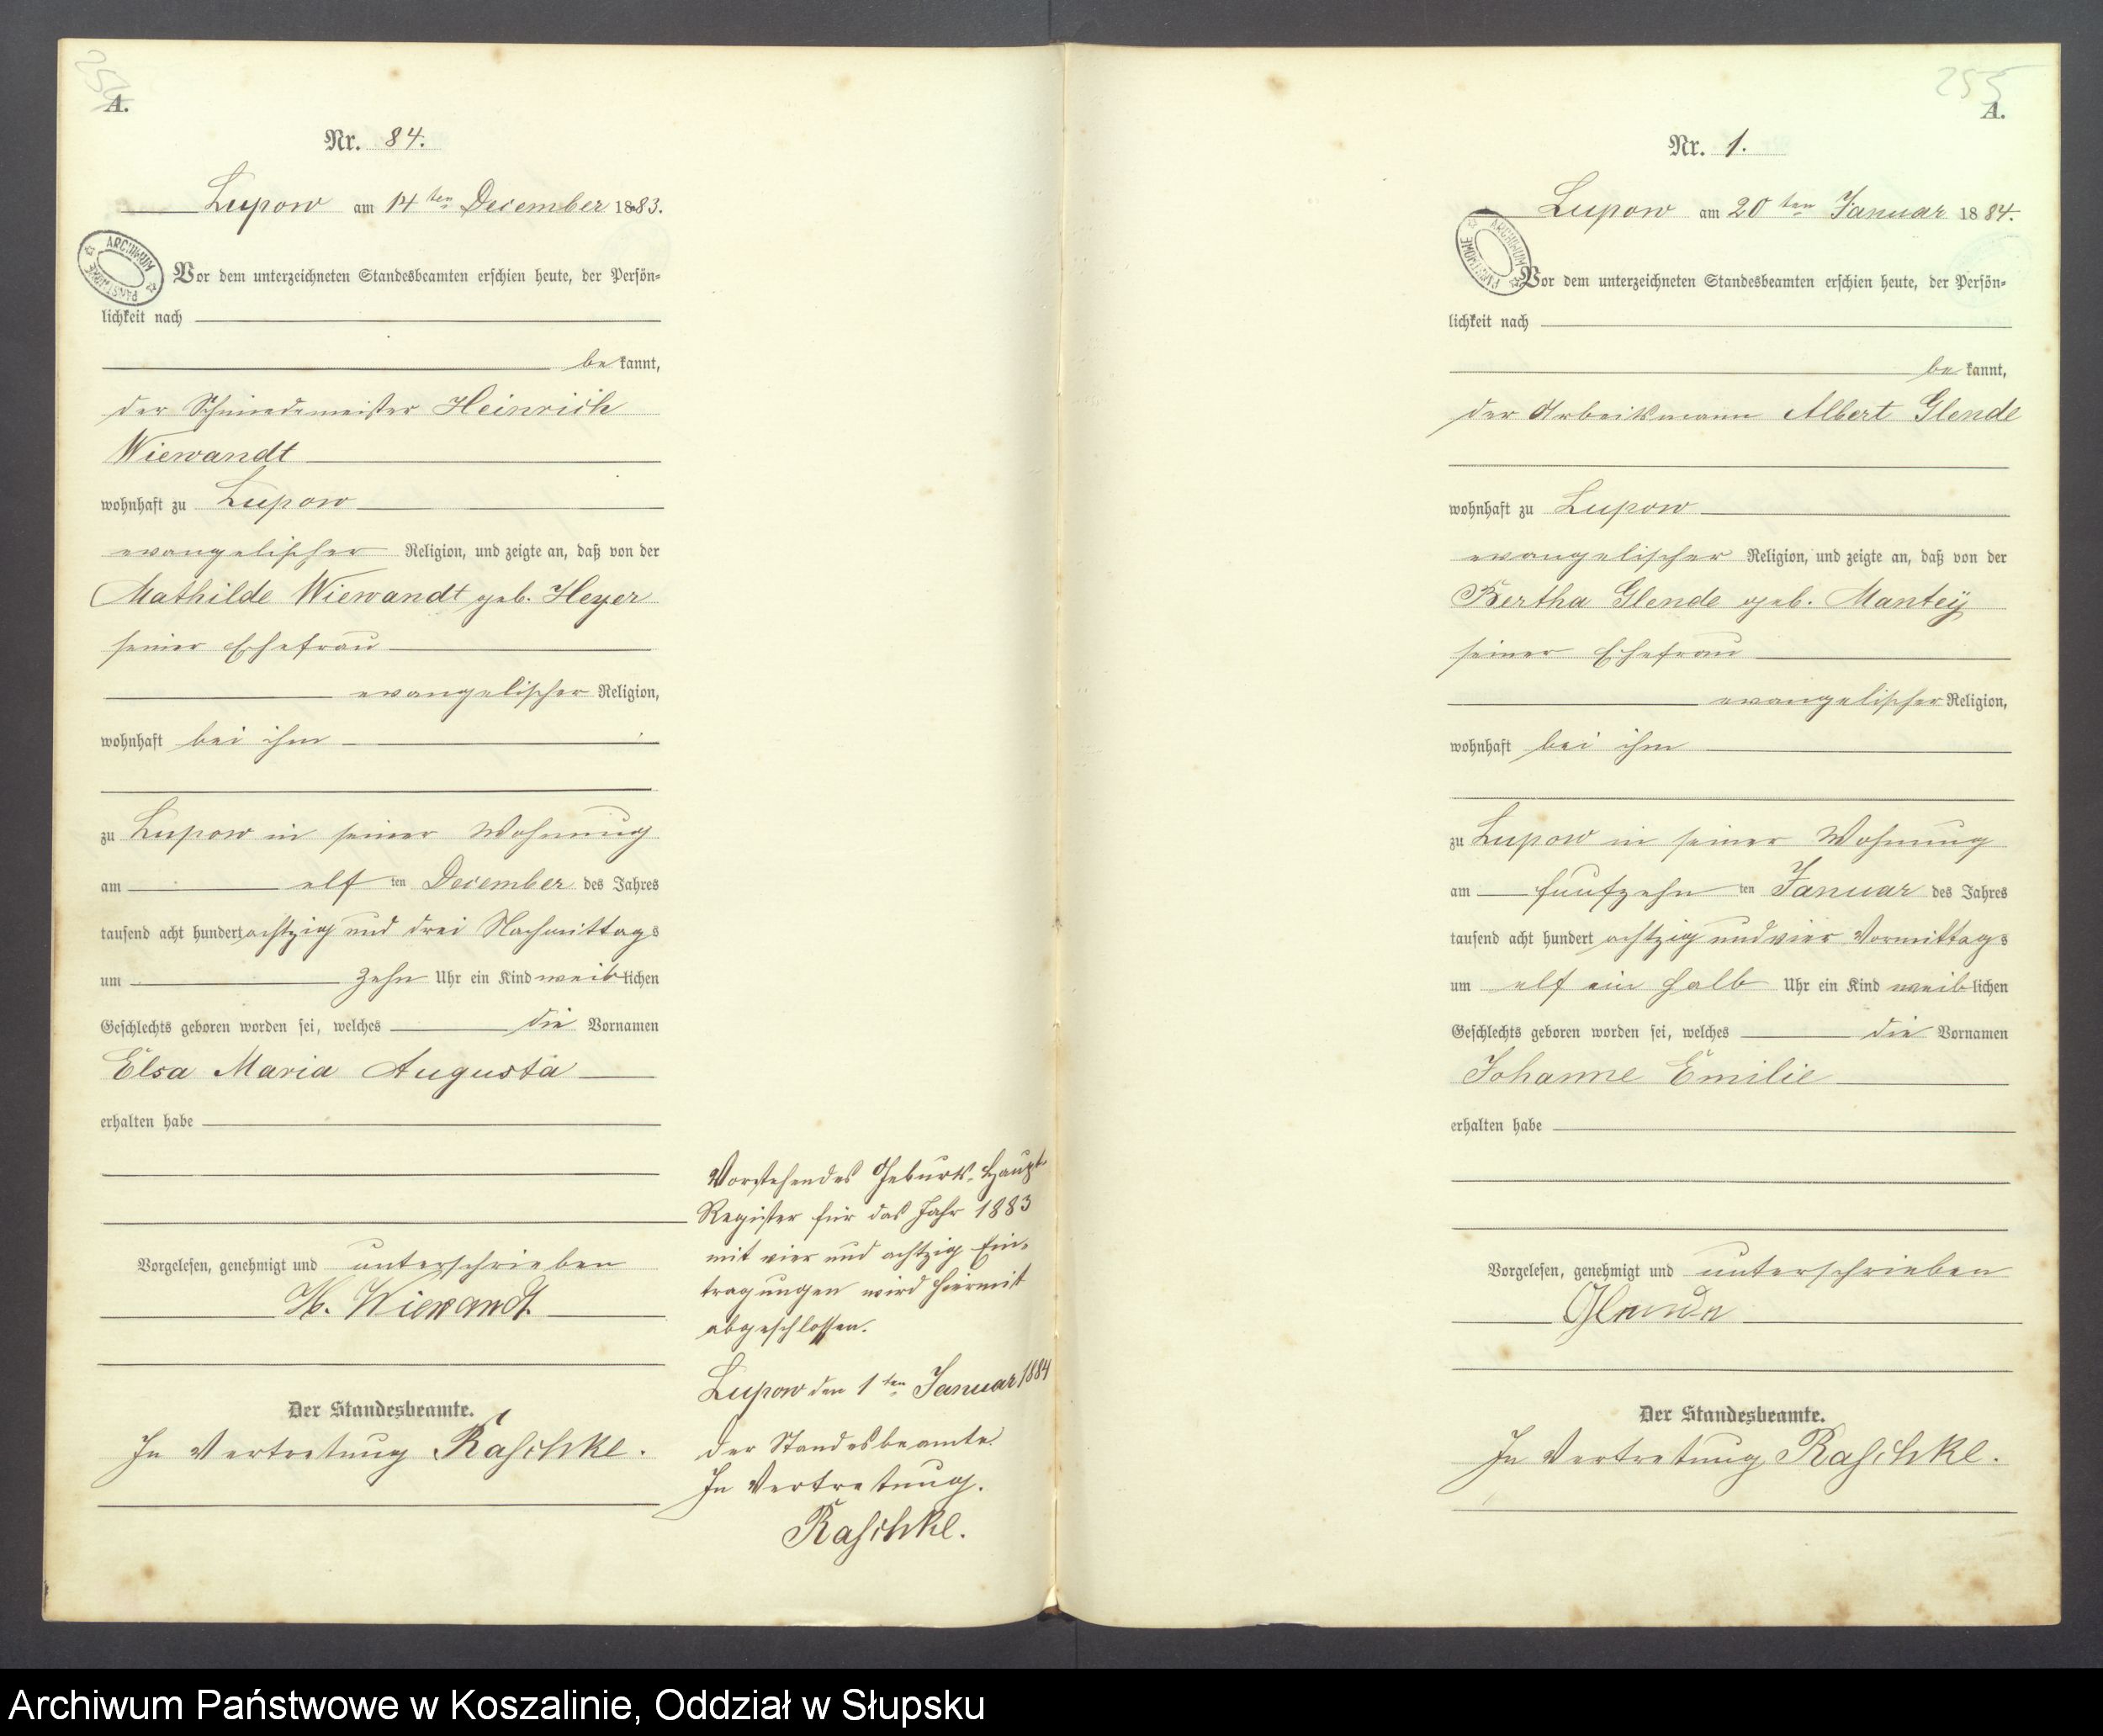 254
A.
Nr. 84.
Lupow am 14ten December 1883.
ARCHIWUM PAŃSTWOWE
Vor dem unterzeichneten Standesbeamten erschien heute, der Persön-
lichkeit nach
bekannt,
der Schmiedemeister Heinrich
Wiewandt
wohnhaft zu Lupow
evangelischer Religion, und zeigte an, daß von der
Mathilde Wiewandt geb. Heyer
seiner Ehefrau
evangelischer Religion,
wohnhaft bei ihm
zu Lupow in seiner Wohnung
am elf ten December des Jahres
tausend acht hundert achtzig und drei Nachmittags
um zehn Uhr ein Kind weiblichen
Geschlechts geboren worden sei, welches die Vornamen
Elsa Maria Augusta
erhalten habe
Vorgelesen, genehmigt und unterschrieben
H. Wiewandt.
Der Standesbeamte.
In Vertretung Raschke.
Vorstehendes Geburts-Haupt-
Register für das Jahr 1883
mit vier und achtzig Ein-
tragungen wird hiermit
abgeschlossen.
Lupow den 1ten Januar 1884
Der Standesbeamte
In Vertretung.
Raschke.
255
A.
Nr. 1.
Lupow am 20ten Januar 1884.
ARCHIWUM PAŃSTWOWE
Vor dem unterzeichneten Standesbeamten erschien heute, der Persön-
lichkeit nach
bekannt,
der Arbeitsmann Albert Glende
wohnhaft zu Lupow
evangelischer Religion, und zeigte an, daß von der
Bertha Glende geb. Manteÿ
seiner Ehefrau
evangelischer Religion,
wohnhaft bei ihm
zu Lupow in seiner Wohnung
am fünfzehn ten Januar des Jahres
tausend acht hundert achtzig und vier Vormittags
um elf ein halb Uhr ein Kind weiblichen
Geschlechts geboren worden sei, welches die Vornamen
Johanne Emilie
erhalten habe
Vorgelesen, genehmigt und unterschrieben
Glende
Der Standesbeamte.
In Vertretung Raschke.
Archiwum Państwowe w Koszalinie, Oddział w Słupsku